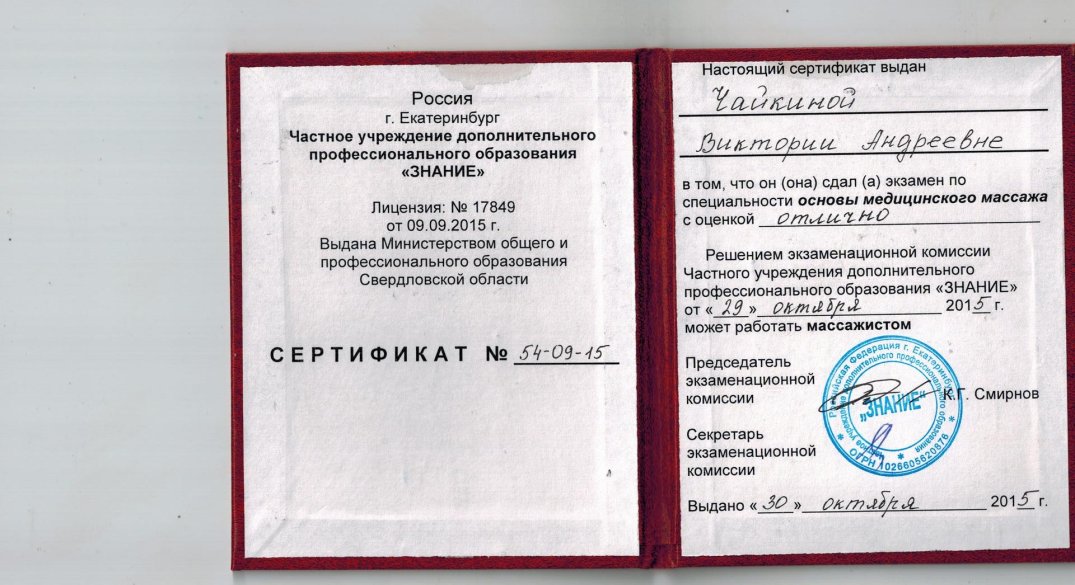 Россия
г. Екатеринбург
Частное учреждение дополнительного
профессионального образования
«ЗНАНИЕ»
Лицензия: № 17849
от 09.09.2015 г.
Выдана Министерством общего и
профессионального образования
Свердловской области
СЕРТИФИКАТ № 54-09-15
Настоящий сертификат выдан
Чайкиной
Виктории Андреевне
в том, что он (она) сдал (а) экзамен по
специальности основы медицинского массажа
с оценкой отлично
Решением экзаменационной комиссии
Частного учреждения дополнительного
профессионального образования «ЗНАНИЕ»
от «29» октября 2015 г.
может работать массажистом
Председатель
экзаменационной
комиссии
К.Г. Смирнов
Секретарь
экзаменационной
комиссии
Российская Федерация г. Екатеринбург
учреждение дополнительного профессионального образования
„ЗНАНИЕ“
ОГРН 1026605620876
Выдано «30» октября 2015 г.